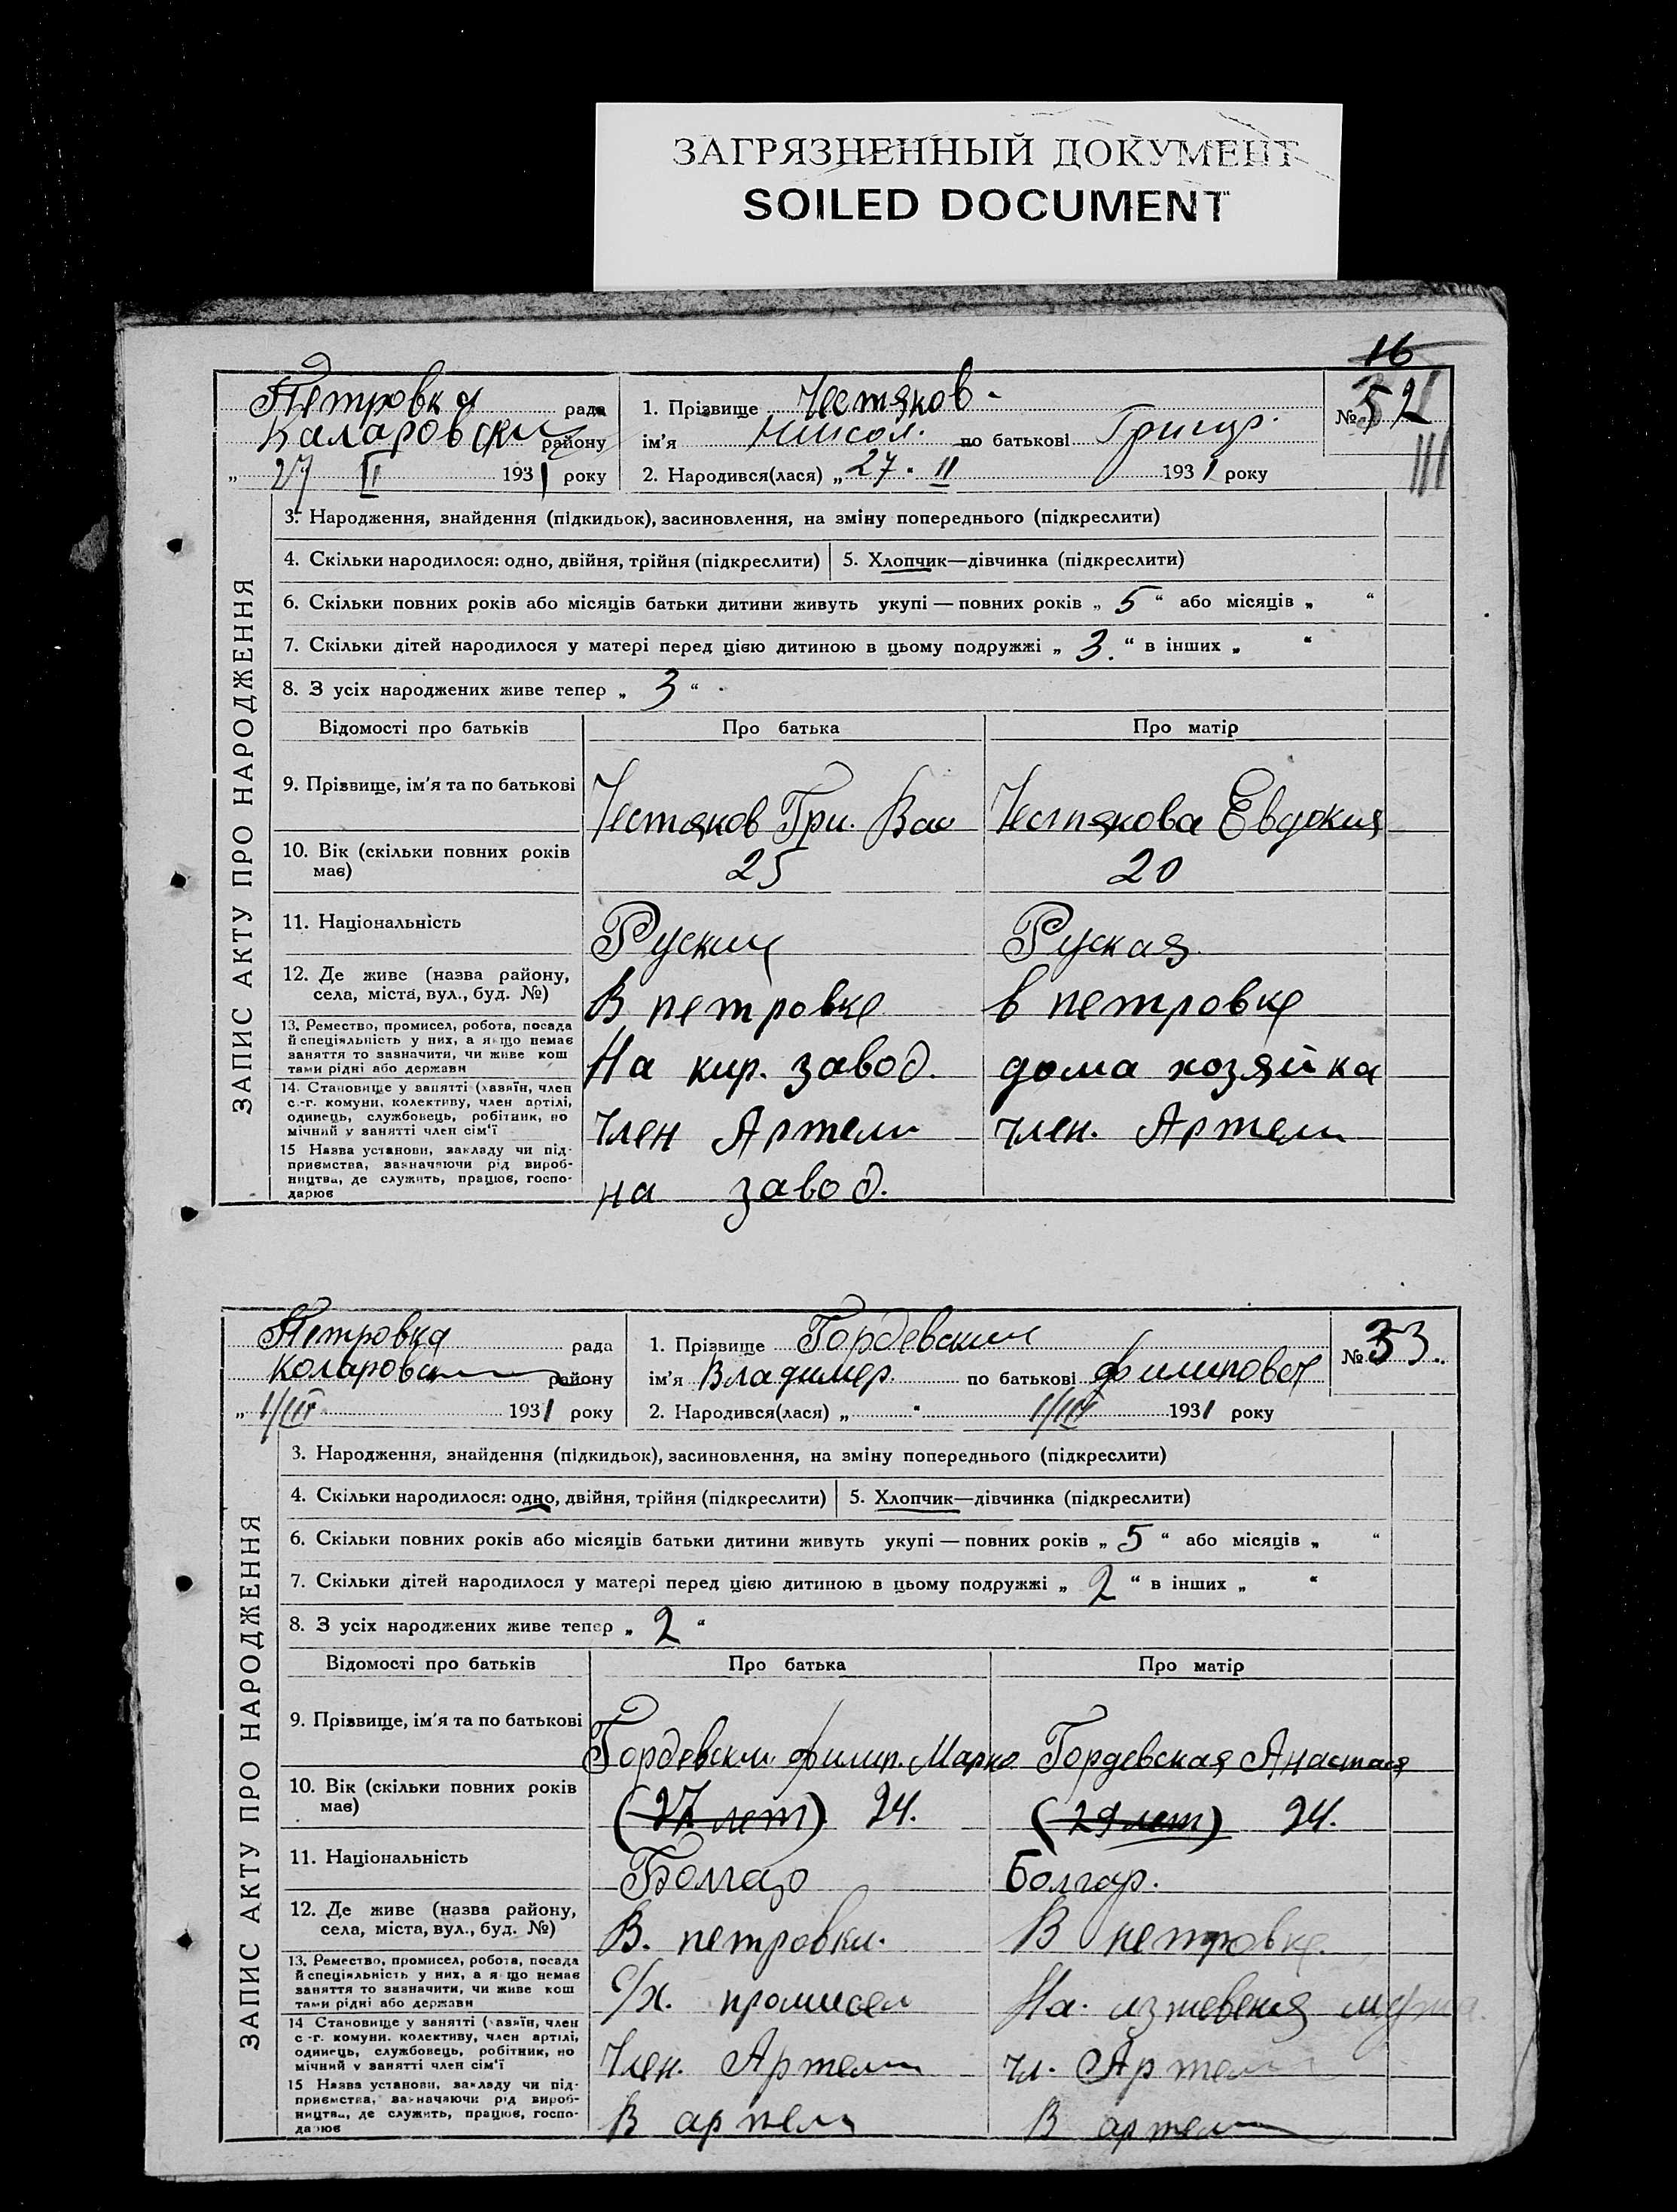 ЗАГРЯЗНЕННЫЙ ДОКУМЕНТ
SOILED DOCUMENT
16
Петровка рада
Каларовски району
„ 27 II 1931 року
1. Прізвище Честяков
ім'я Никол. по батькові Григор.
2. Народився(лася) „ 27 " II 1931 року
№ 52
ЗАПИС АКТУ ПРО НАРОДЖЕННЯ
3. Народження, знайдення (підкидьок), засиновлення, на зміну попереднього (підкреслити)
4. Скільки народилося: одно, двійня, трійня (підкреслити) 5. Хлопчик—дівчинка (підкреслити)
6. Скільки повних років або місяців батьки дитини живуть укупі — повних років „ 5 “ або місяців „ “
7. Скільки дітей народилося у матері перед цією дитиною в цьому подружжі „ 3. “ в інших „ “
8. З усіх народжених живе тепер „ 3 “
Відомості про батьків Про батька Про матір
9. Прізвище, ім'я та по батькові Честяков Гри. Вас Честякова Евдокия
10. Вік (скільки повних років має) 25 20
11. Національність Руский Руская
12. Де живе (назва району, села, міста, вул., буд. №) В петровке в петровке
13. Ремество, промисел, робота, посада й спеціяльність у них, а якщо немає заняття то зазначити, чи живе коштами рідні або держави На кир. завод. дома хозяйка
14. Становище у занятті (хазяїн, член с.-г. комуни, колективу, член артілі, одинець, службовець, робітник, помічний у занятті член сім'ї Член Артели член. Артели
15 Назва установи, закладу чи підприємства, зазначаючи рід виробництва, де служить, працює, господарює на завод.
Петровка рада
Коларовс району
„ 1/III 1931 року
1. Прізвище Гордевский
ім'я Владимер по батькові Филипович
2. Народився(лася) „ " 1/III 1931 року
№ 33.
ЗАПИС АКТУ ПРО НАРОДЖЕННЯ
3. Народження, знайдення (підкидьок), засиновлення, на зміну попереднього (підкреслити)
4. Скільки народилося: одно, двійня, трійня (підкреслити) 5. Хлопчик—дівчинка (підкреслити)
6. Скільки повних років або місяців батьки дитини живуть укупі — повних років „ 5 “ або місяців „ “
7. Скільки дітей народилося у матері перед цією дитиною в цьому подружжі „ 2 “ в інших „ “
8. З усіх народжених живе тепер „ 2 “
Відомості про батьків Про батька Про матір
9. Прізвище, ім'я та по батькові Гордевски Филип. Марко Гордевская Анастася
10. Вік (скільки повних років має) (27 лет) 24. (29 лет) 24.
11. Національність Болгар Болгар.
12. Де живе (назва району, села, міста, вул., буд. №) В. петровки. В петровке.
13. Ремество, промисел, робота, посада й спеціяльність у них, а якщо немає заняття то зазначити, чи живе коштами рідні або держави С/х. промисел На. изжевеня мужа.
14 Становище у занятті (хазяїн, член с-г. комуни, колективу, член артілі, одинець, службовець, робітник, помічний у занятті член сім'ї Член. Артели чл. Артели
15 Назва установи, закладу чи підприємства, зазначаючи рід виробництва, де служить, працює, господарює В артели В артели